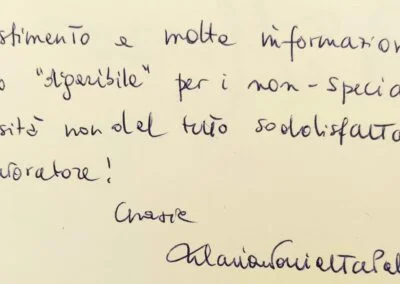 stimento e molte informazion
o "digeribile" per i non-specia
sità non del tutto soddisfatta
avoratore!
Grazie
Mariantonietta Pal